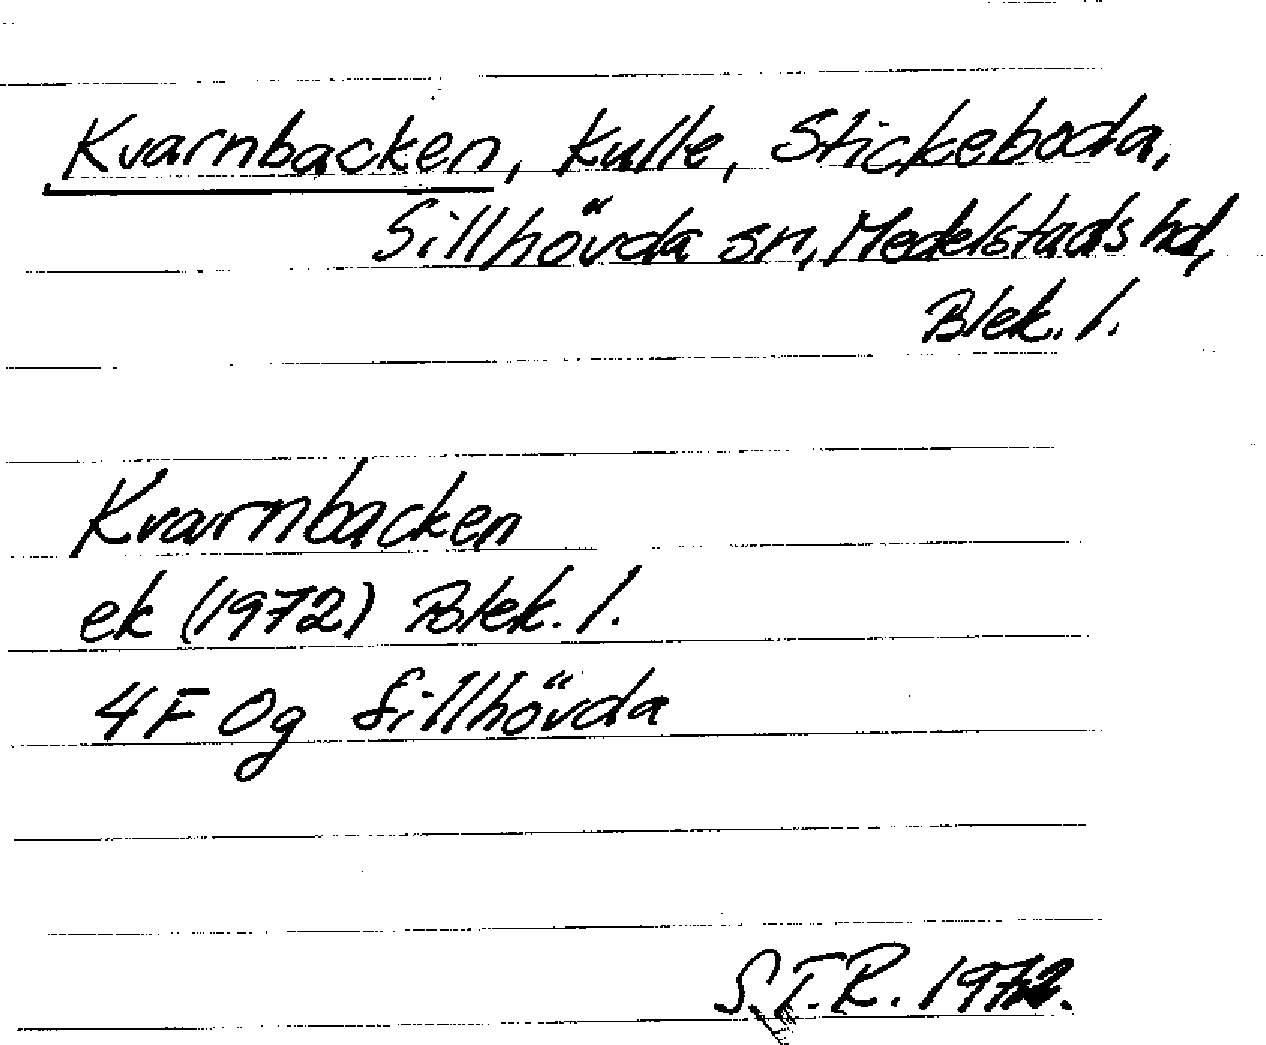 Kvarnbacken, kulle, Stickeboda,
Sillhövda sn, Medelstads hd,
Blek. l.
Kvarnbacken
ek (1972) Blek. l.
4F 0g Sillhövda
S.T.R. 1972.